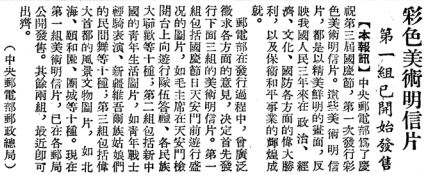 彩色美術明信片
第一組已開始發售
【本報訊】中央郵電部爲了慶
祝第三屆國慶節，第一次發行彩
色美術明信片。這些美術明信
片，都是以精美鮮明的畫面，反
映我國人民三年來在政治、經
濟、文化、國防各方面的偉大勝
利，以及保衛和平事業的輝煌成
就。
郵電部在發行過程中，曾廣泛
徵求各方面的意見，決定首先發
行下面三組的美術明信片。第一
組包括國慶節日天安門前遊行盛
況的圖片，如毛主席在天安門檢
閱台上向遊行隊伍答禮、各民族
大聯歡等十種；第二組包括新中
國的青年生活圖片，如青年戰士
輕騎表演、新疆維吾爾族姑娘們
的民間舞等十種；第三組包括偉
大首都的風景文物圖片，如北
海、頤和園、團城等十種。現在
第一組美術明信片，已在各郵局
公開發售。其餘兩組，最近即可
出齊。
（中央郵電部郵政總局）